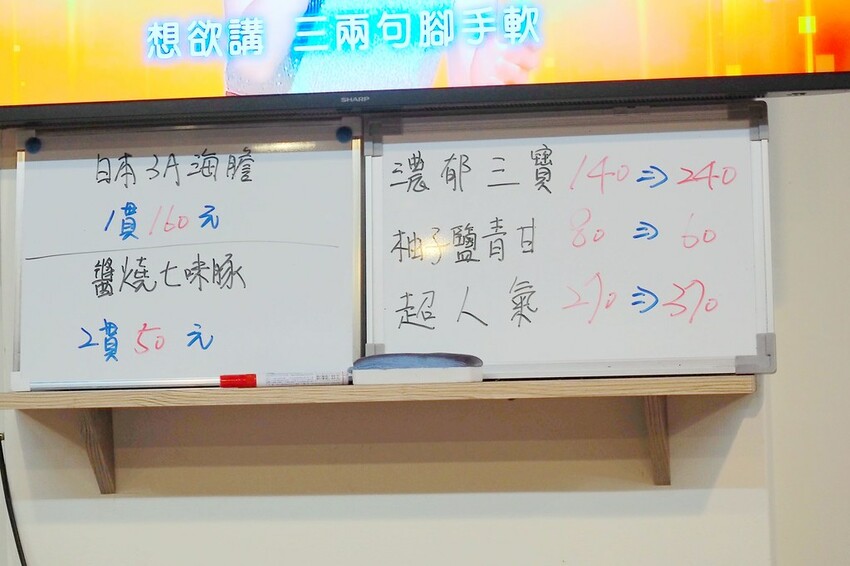 想欲講 三兩句腳手軟
SHARP
日本3A海膽
1貫160元
醬燒七味豚
2貫50元
濃郁三寶 140⇒240
柚子鹽青甘 80⇒60
超人氣 270⇒370